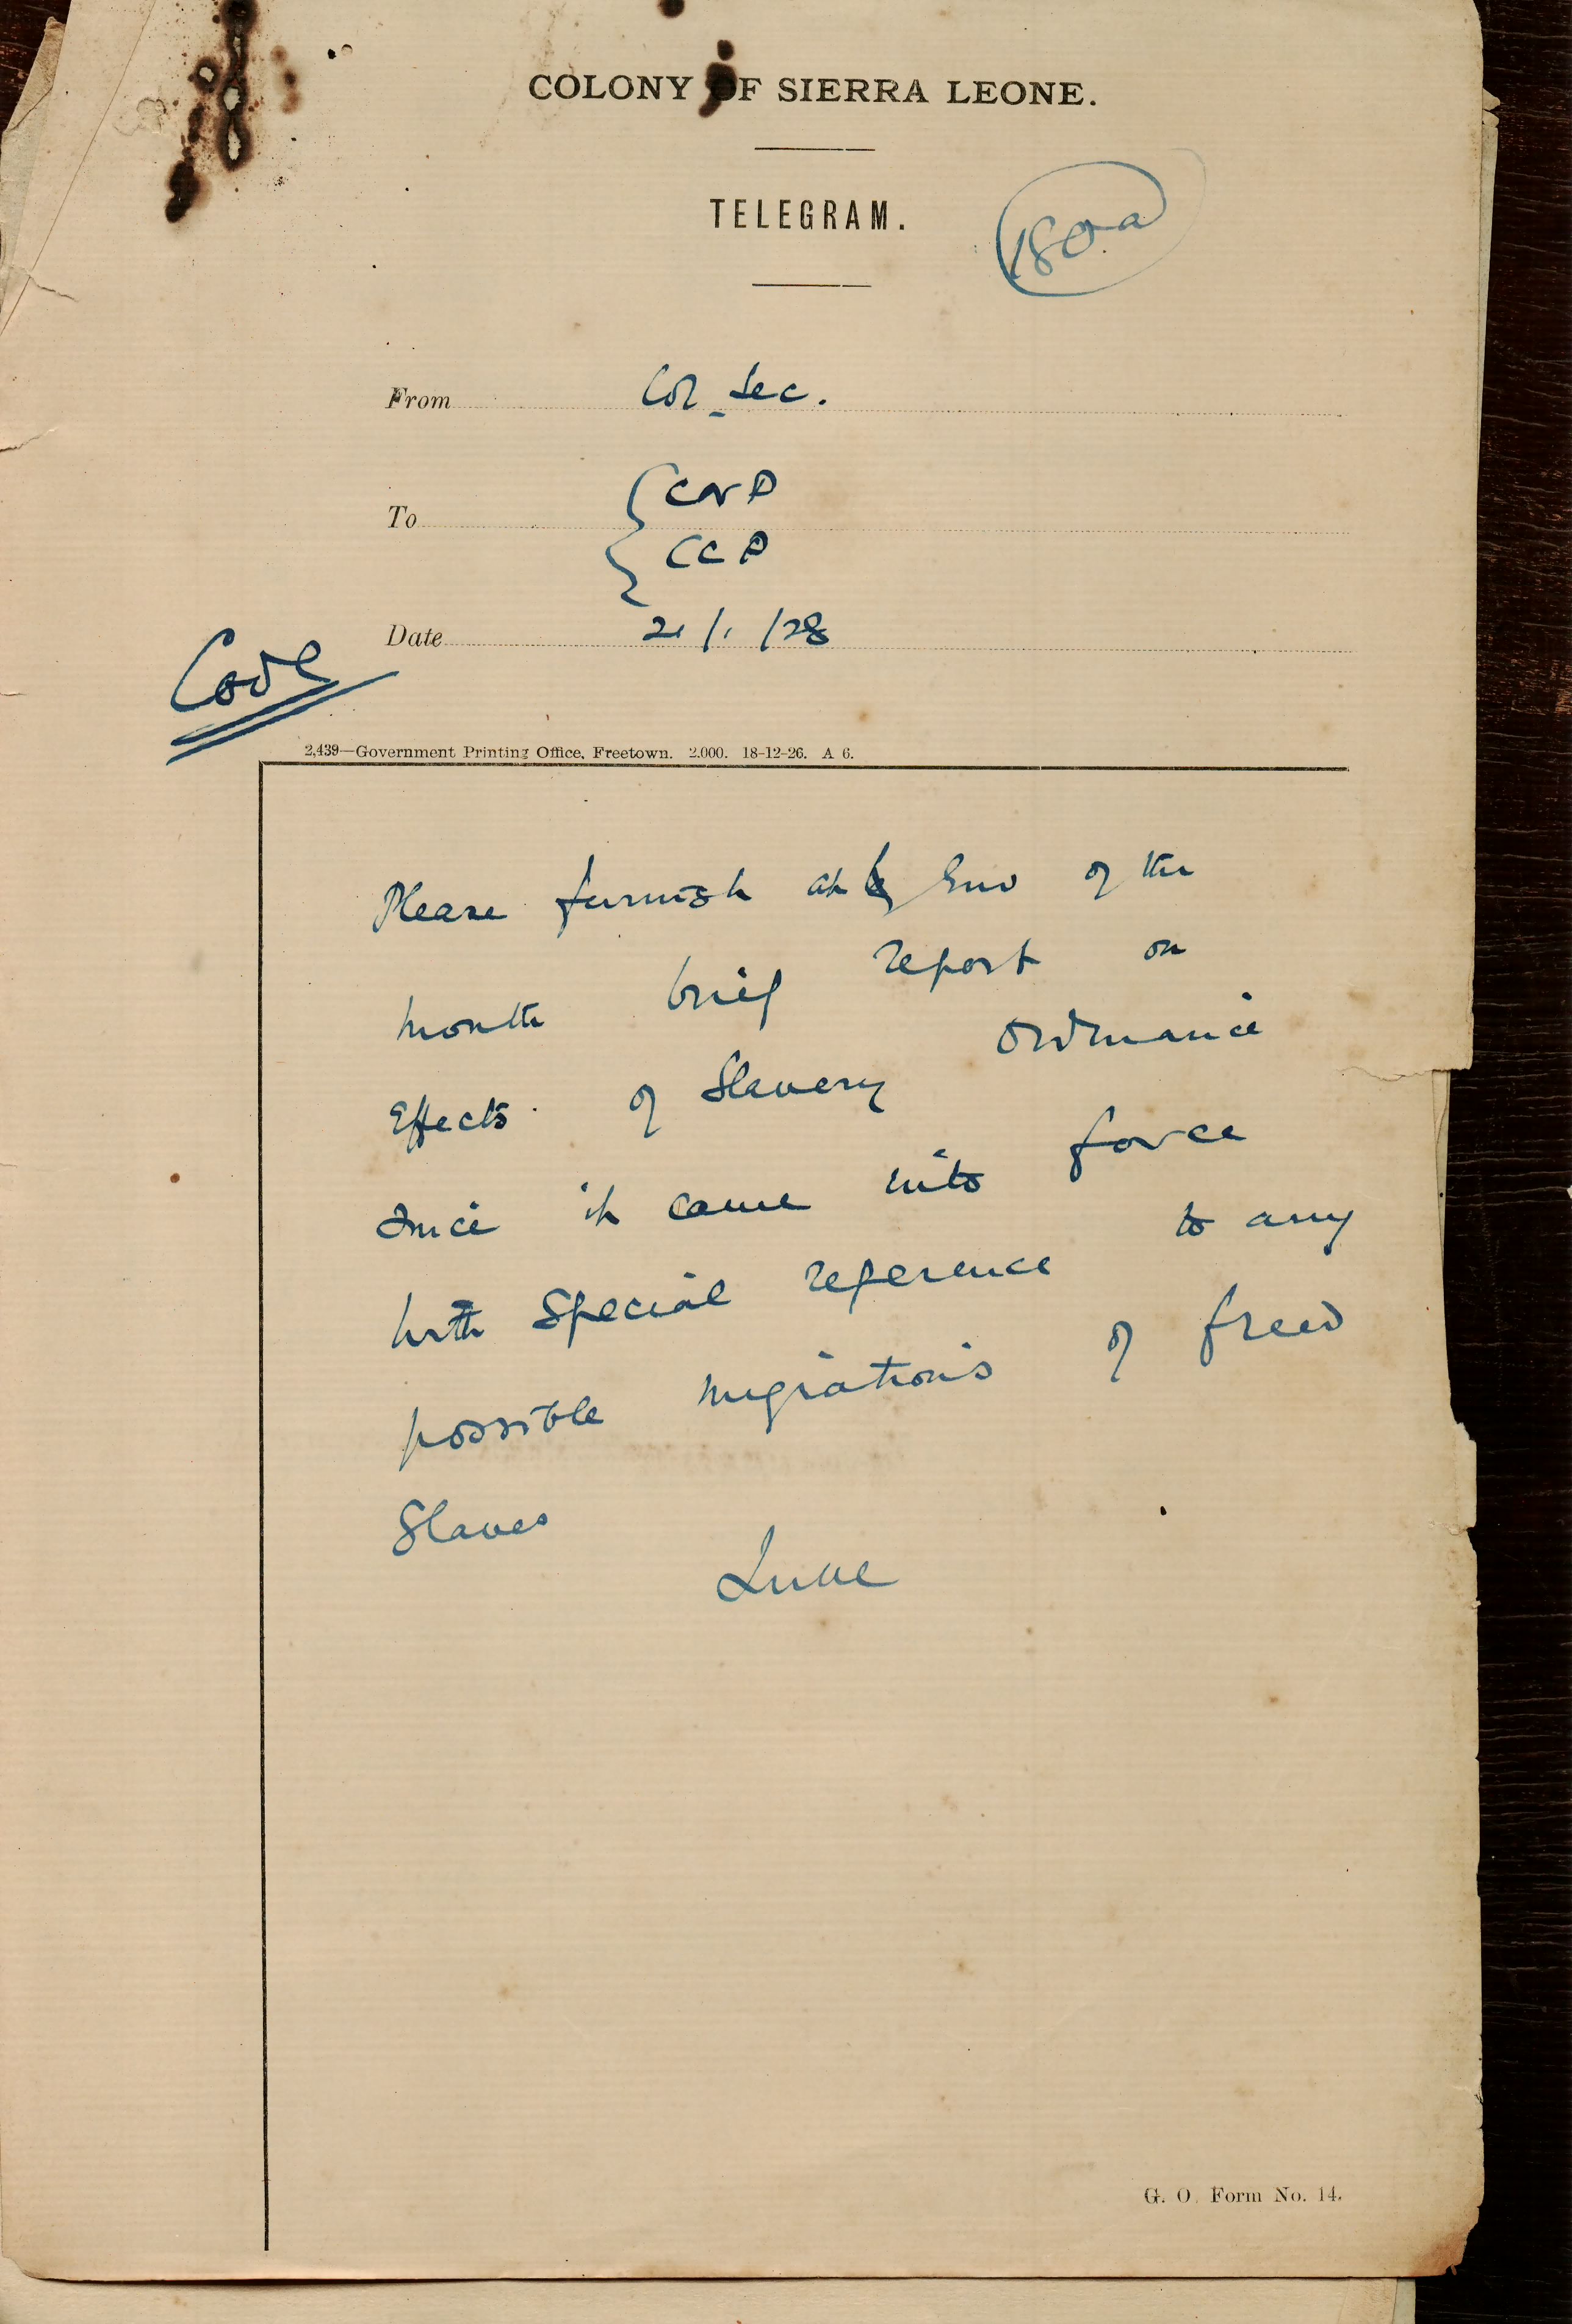 COLONY OF SIERRA LEONE.
TELEGRAM.
180a
From Col. Sec.
To CNP
CCP
Date 21/1/28
Code
2,439—Government Printing Office, Freetown. 2.000. 18-12-26. A 6.
Please furnish at end of the
month brief report on
effects of Slavery Ordinance
since it came into force
with special reference to any
possible migrations of freed
Slaves
Luke
G. O. Form No. 14.